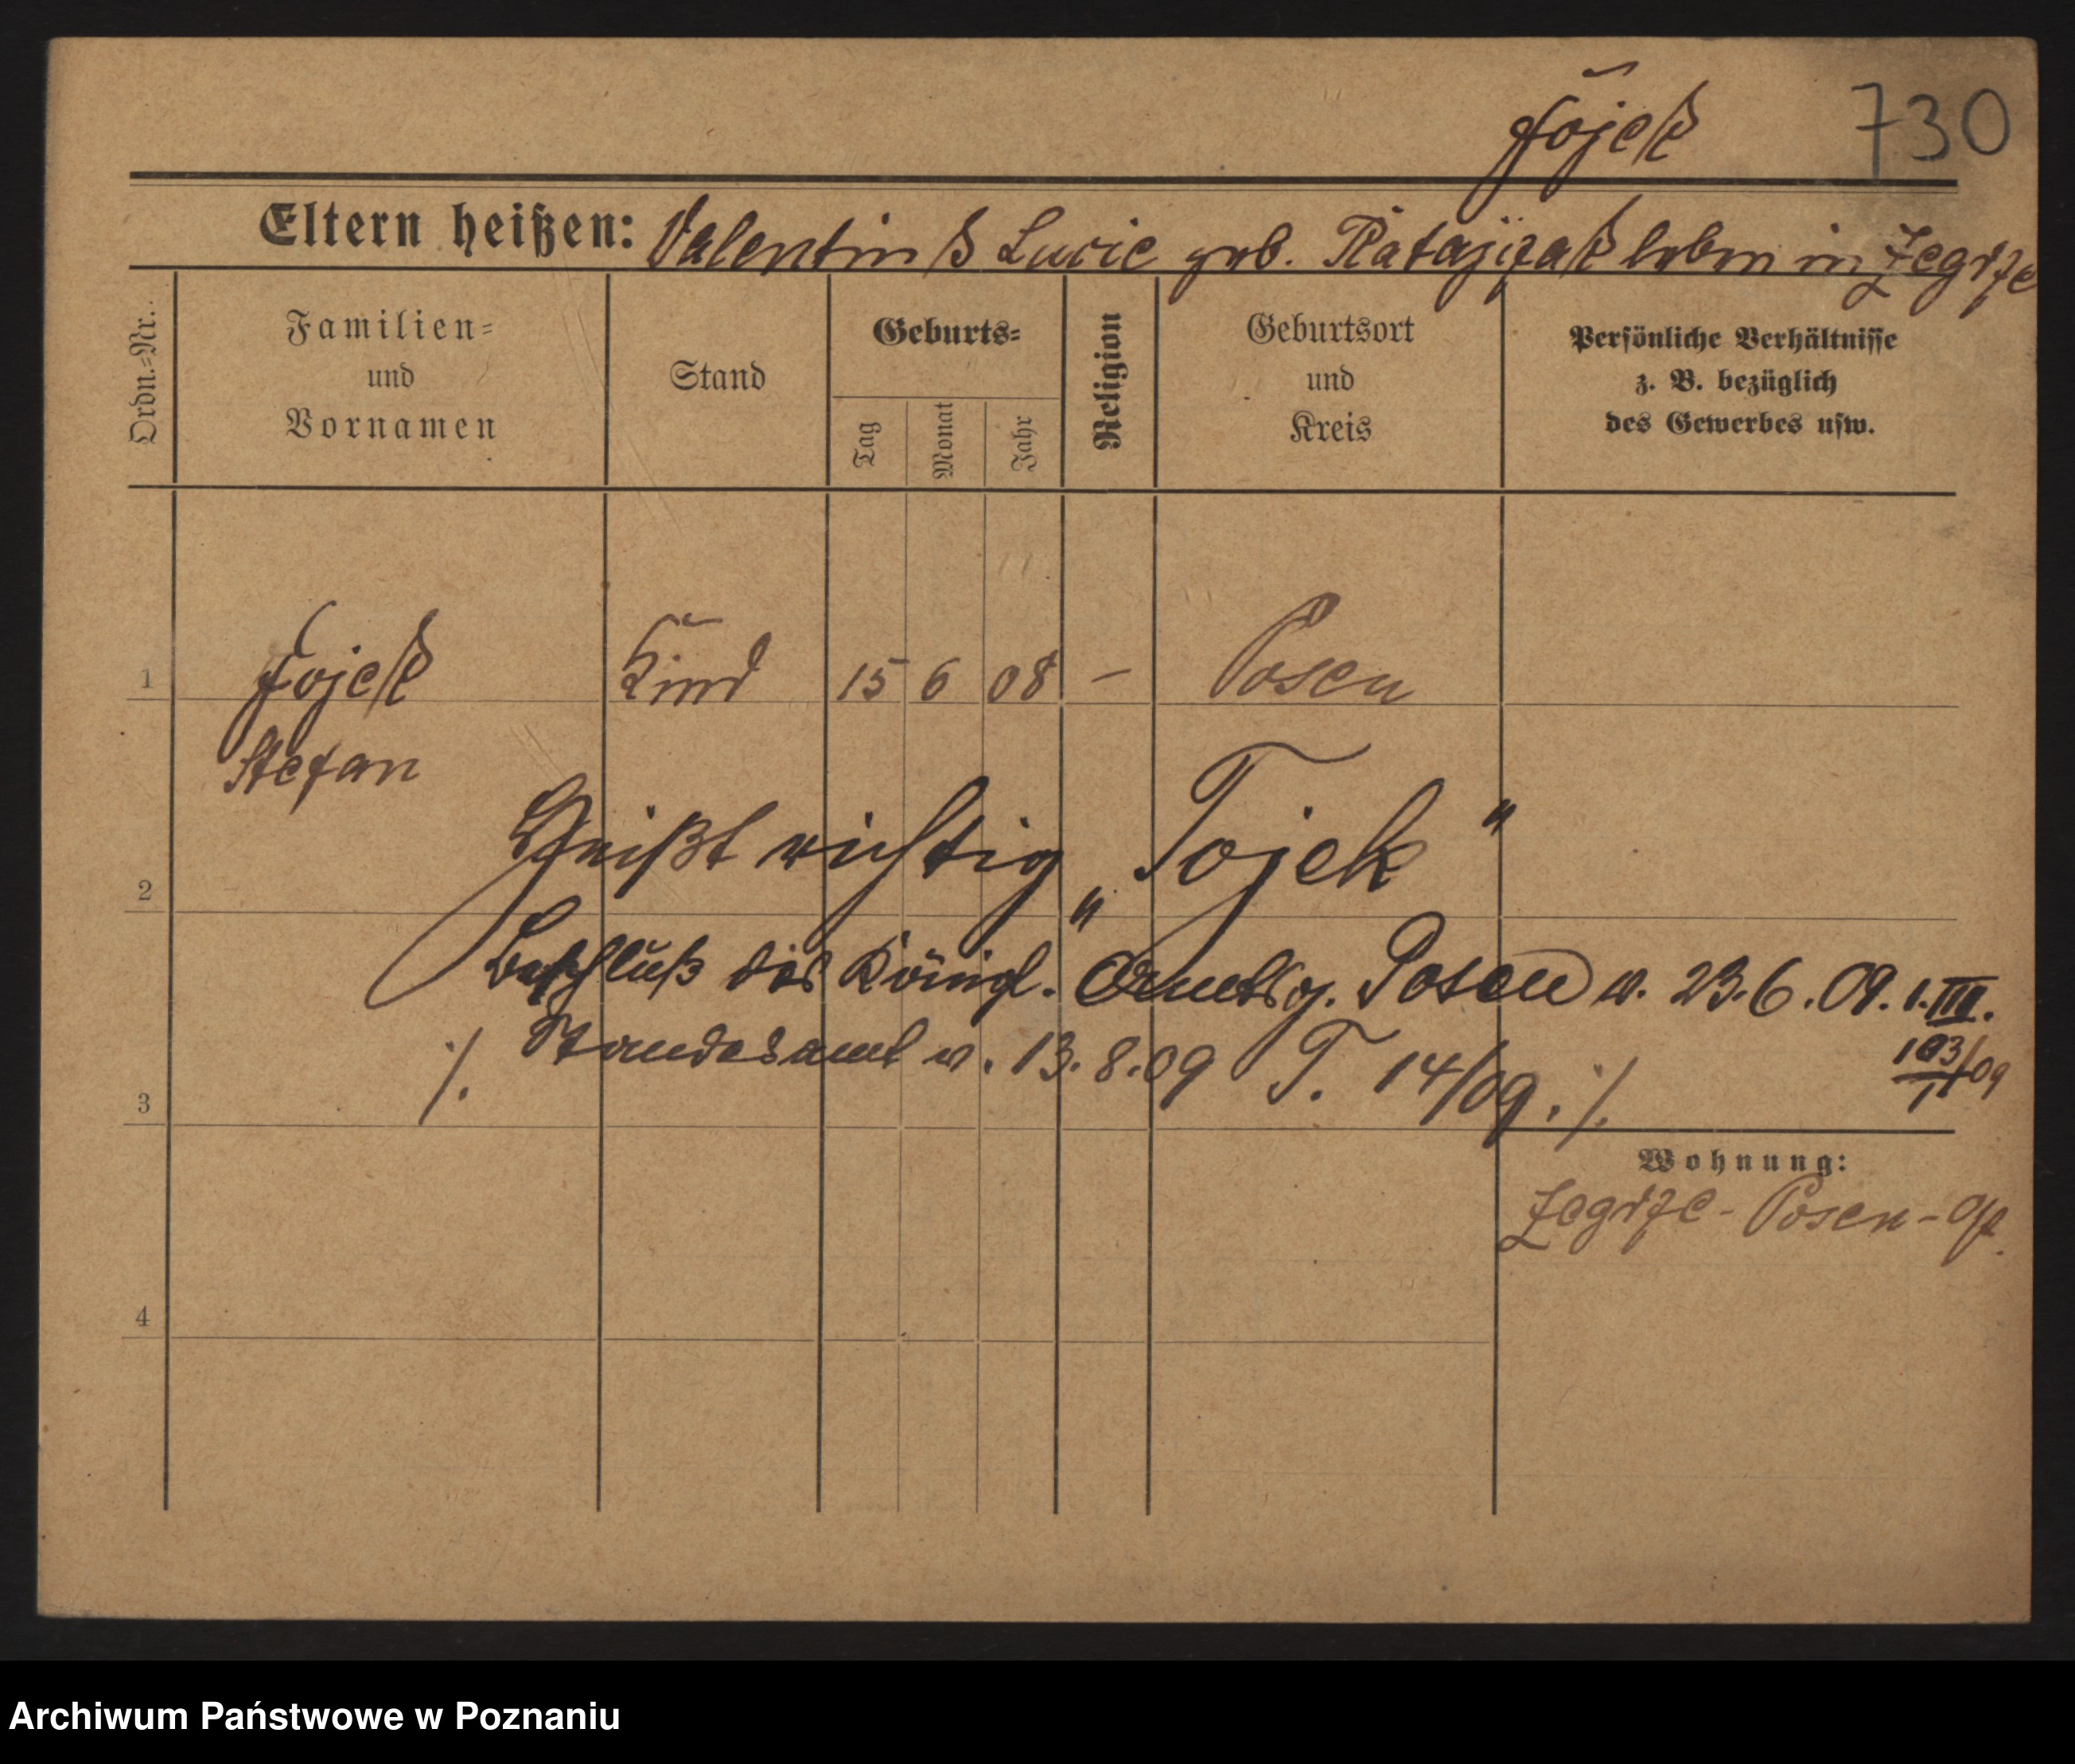 Fojek
730
Eltern heißen: Valentin & Lucie geb. Ratajczak leben in Zegrze
Ordn.-Nr.
Familien-
und
Vornamen
Stand
Geburts-
Tag
Monat
Jahr
Religion
Geburtsort
und
Kreis
Persönliche Verhältnisse
z. B. bezüglich
des Gewerbes usw.
1 Fojek Kind 15 6 08 – Posen
Stefan
Heißt richtig „Tojek“
2
Beschluß des Königl. Amtsg. Posen v. 23.6.09. 1.III.
103/09
Standesamt v. 13.8.09 T. 14/09 ./.
3
Wohnung:
Zegrze - Posen - O/
4
Archiwum Państwowe w Poznaniu